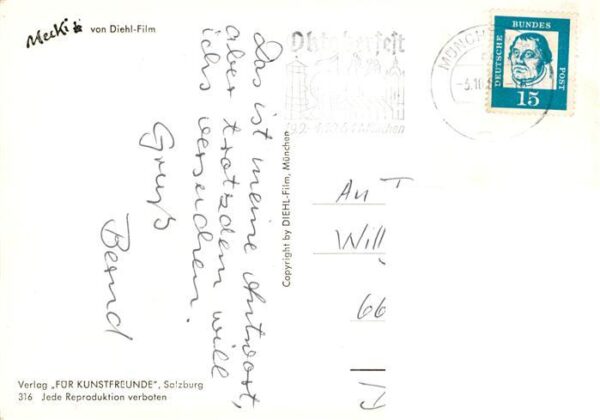 Mecki von Diehl-Film
Das ist meine Antwort,
aber trotzdem will
ichs versuchen.
Gruß
Bernd
Verlag „FÜR KUNSTFREUNDE", Salzburg
316 Jede Reproduktion verboten
Copyright by DIEHL-Film, München
Oktoberfest
München
DEUTSCHE BUNDESPOST
15
An
Will
66